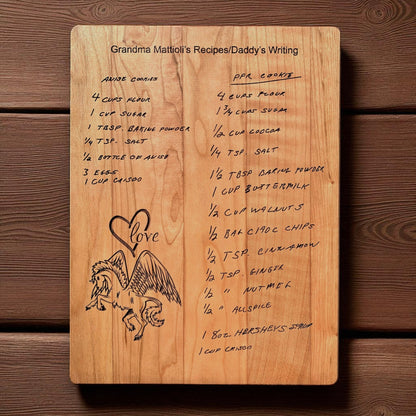 Grandma Mattioli's Recipes/Daddy's Writing
ANISE COOKIES
4 CUPS FLOUR
1 CUP SUGAR
1 TBSP. BAKING POWDER
1/4 TSP. SALT
1/2 BOTTLE OF ANISE
3 EGGS
1 CUP CRISCO
love
PPR COOKIE
4 CUPS FLOUR
1 3/4 CUPS SUGAR
1/2 CUP COCOA
1/4 TSP. SALT
1 1/2 TBSP BAKING POWDER
1 CUP BUTTERMILK
1/2 CUP WALNUTS
1/2 BAG CHOC CHIPS
1/2 TSP. CINNAMON
1/2 TSP. GINGER
1/2 " NUTMEG
1/2 " ALLSPICE
1 8oz. HERSHEYS SYRUP
1 CUP CRISCO